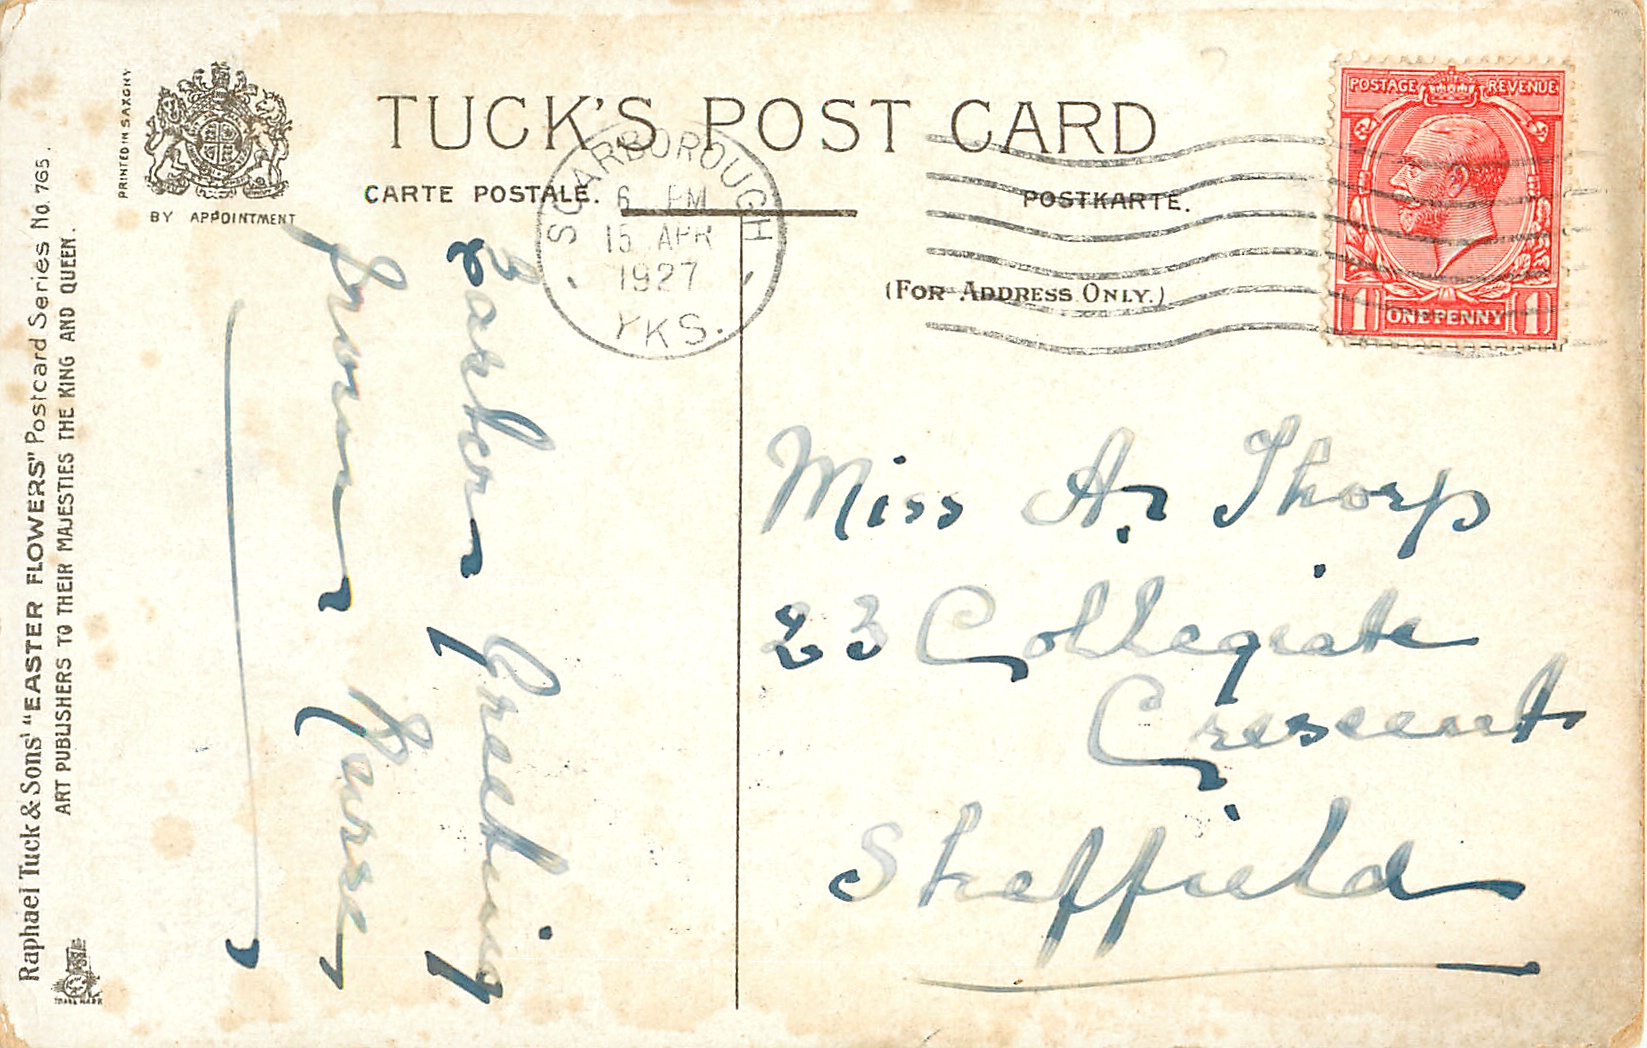 PRINTED IN SAXONY
BY APPOINTMENT
TUCK'S POST CARD
CARTE POSTALE.
POSTKARTE.
(FOR ADDRESS ONLY.)
POSTAGE REVENUE
1 ONE PENNY 1
SCARBOROUGH
6 PM
15 APR
1927
YKS.
Raphael Tuck & Sons' "EASTER FLOWERS" Postcard Series No. 765.
ART PUBLISHERS TO THEIR MAJESTIES THE KING AND QUEEN.
TRADE MARK
Greeting
from Nurse
Miss A. Thorp
23 Collegiate
Crescent
Sheffield